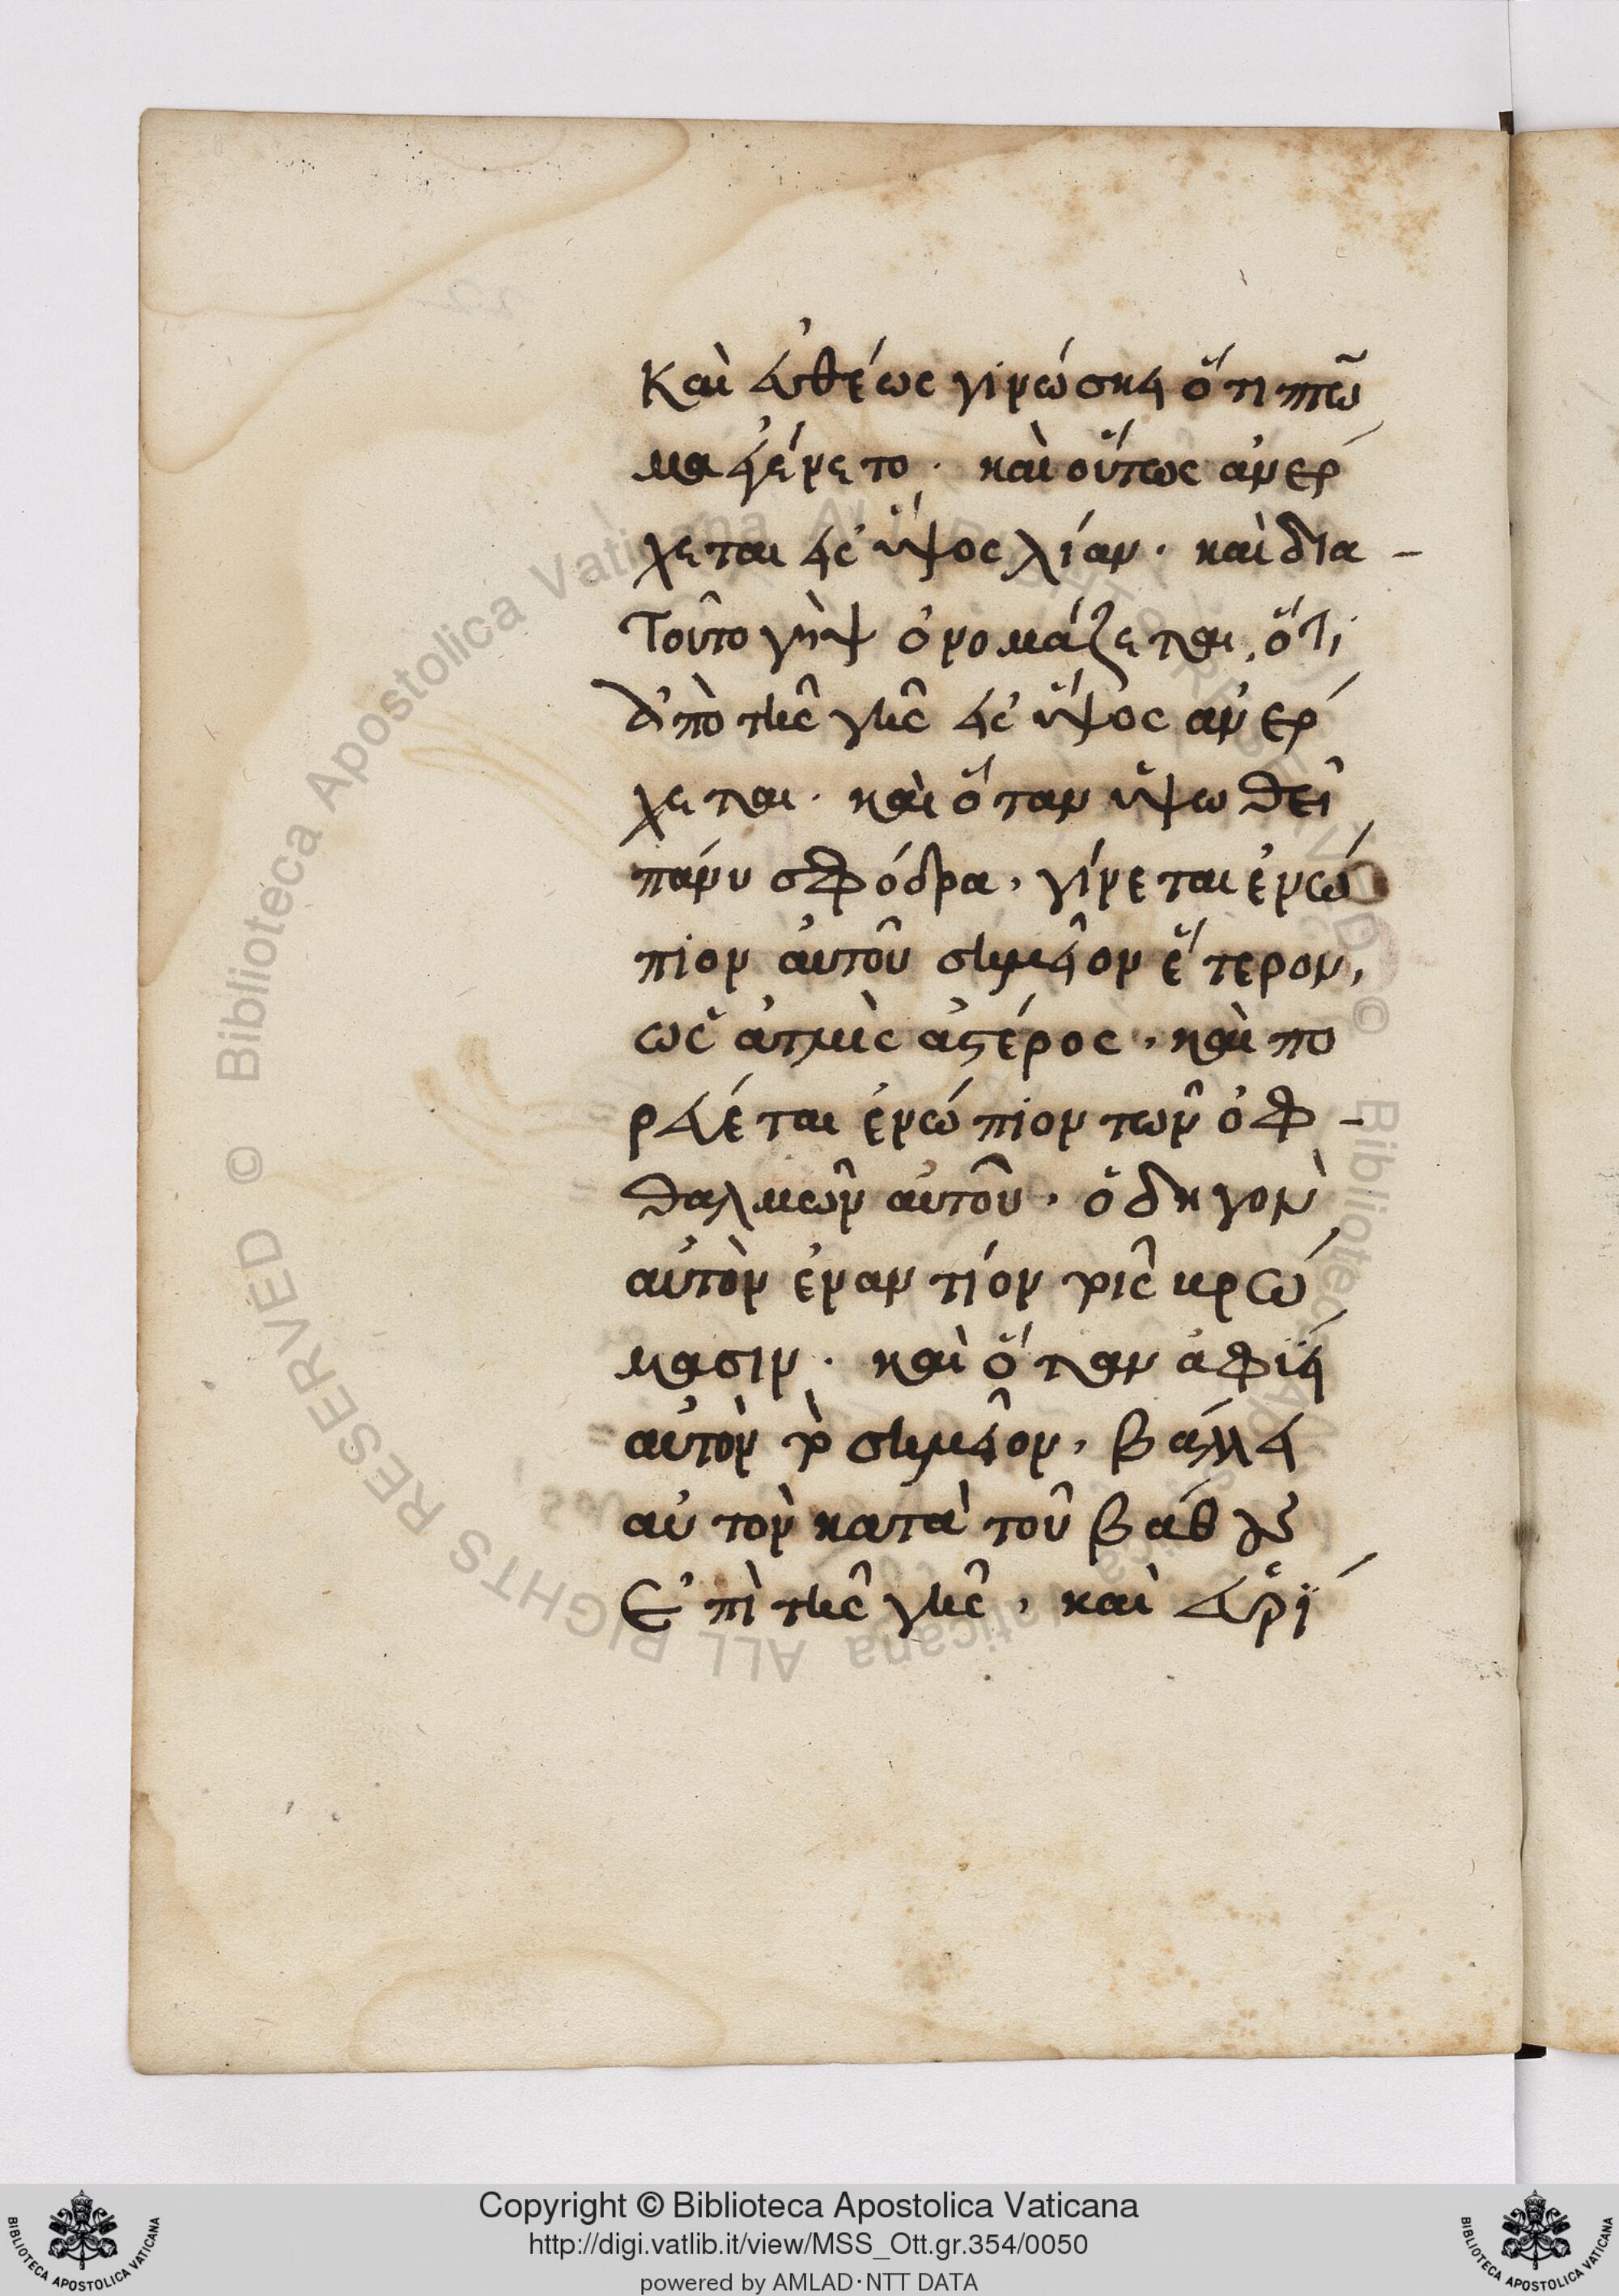 Καὶ εὐθέως γινώσκει ὅτι πτῶ
μα ἐγένετο. καὶ οὕτως ἀνέρ
χεται εἰς ὕψος λίαν. καὶ δια-
Τοῦτο γὴψ ὀνομάζεται, ὅτι
ἀπὸ τῆς γῆς εἰς ὕψος ἀνέρ
χεται. καὶ ὅταν ὑψωθεῖ
πάνυ σφόδρα, γίνεται ἐνώ
πιον αὐτοῦ σημεῖον ἕτερον,
ὡς ἀτμὶς ἀστέρος, καὶ πο
ρεύεται ἐνώπιον τῶν ὀφ-
θαλμῶν αὐτοῦ, ὁδηγὸν
αὐτὸν ἐναντίον τοῖς κρώ
μασιν. καὶ ὅταν ἀφίει
αὐτὸν τὸ σημεῖον, βάλλει
αὐτὸν κατὰ τοῦ βάθους
Ἐπὶ τῆς γῆς, καὶ εὑρί
Copyright © Biblioteca Apostolica Vaticana
http://digi.vatlib.it/view/MSS_Ott.gr.354/0050
powered by AMLAD·NTT DATA
BIBLIOTECA APOSTOLICA VATICANA
BIBLIOTECA APOSTOLICA VATICANA
© Biblioteca Apostolica Vaticana ALL RIGHTS RESERVED